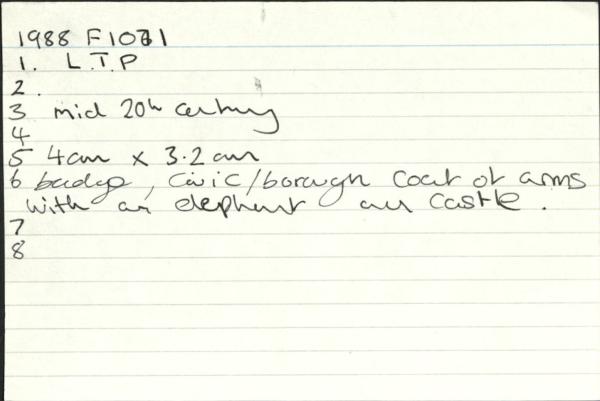 1988 F1071
1. L.T.P
2.
3 mid 20th century
4
5 4cm x 3.2cm
6 badge, civic/borough coat of arms
with an elephant and castle.
7
8